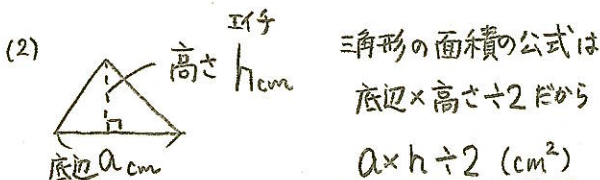 (2)
エイチ
高さ h cm
底辺 a cm
三角形の面積の公式は
底辺×高さ÷2 だから
a×h÷2 (cm²)